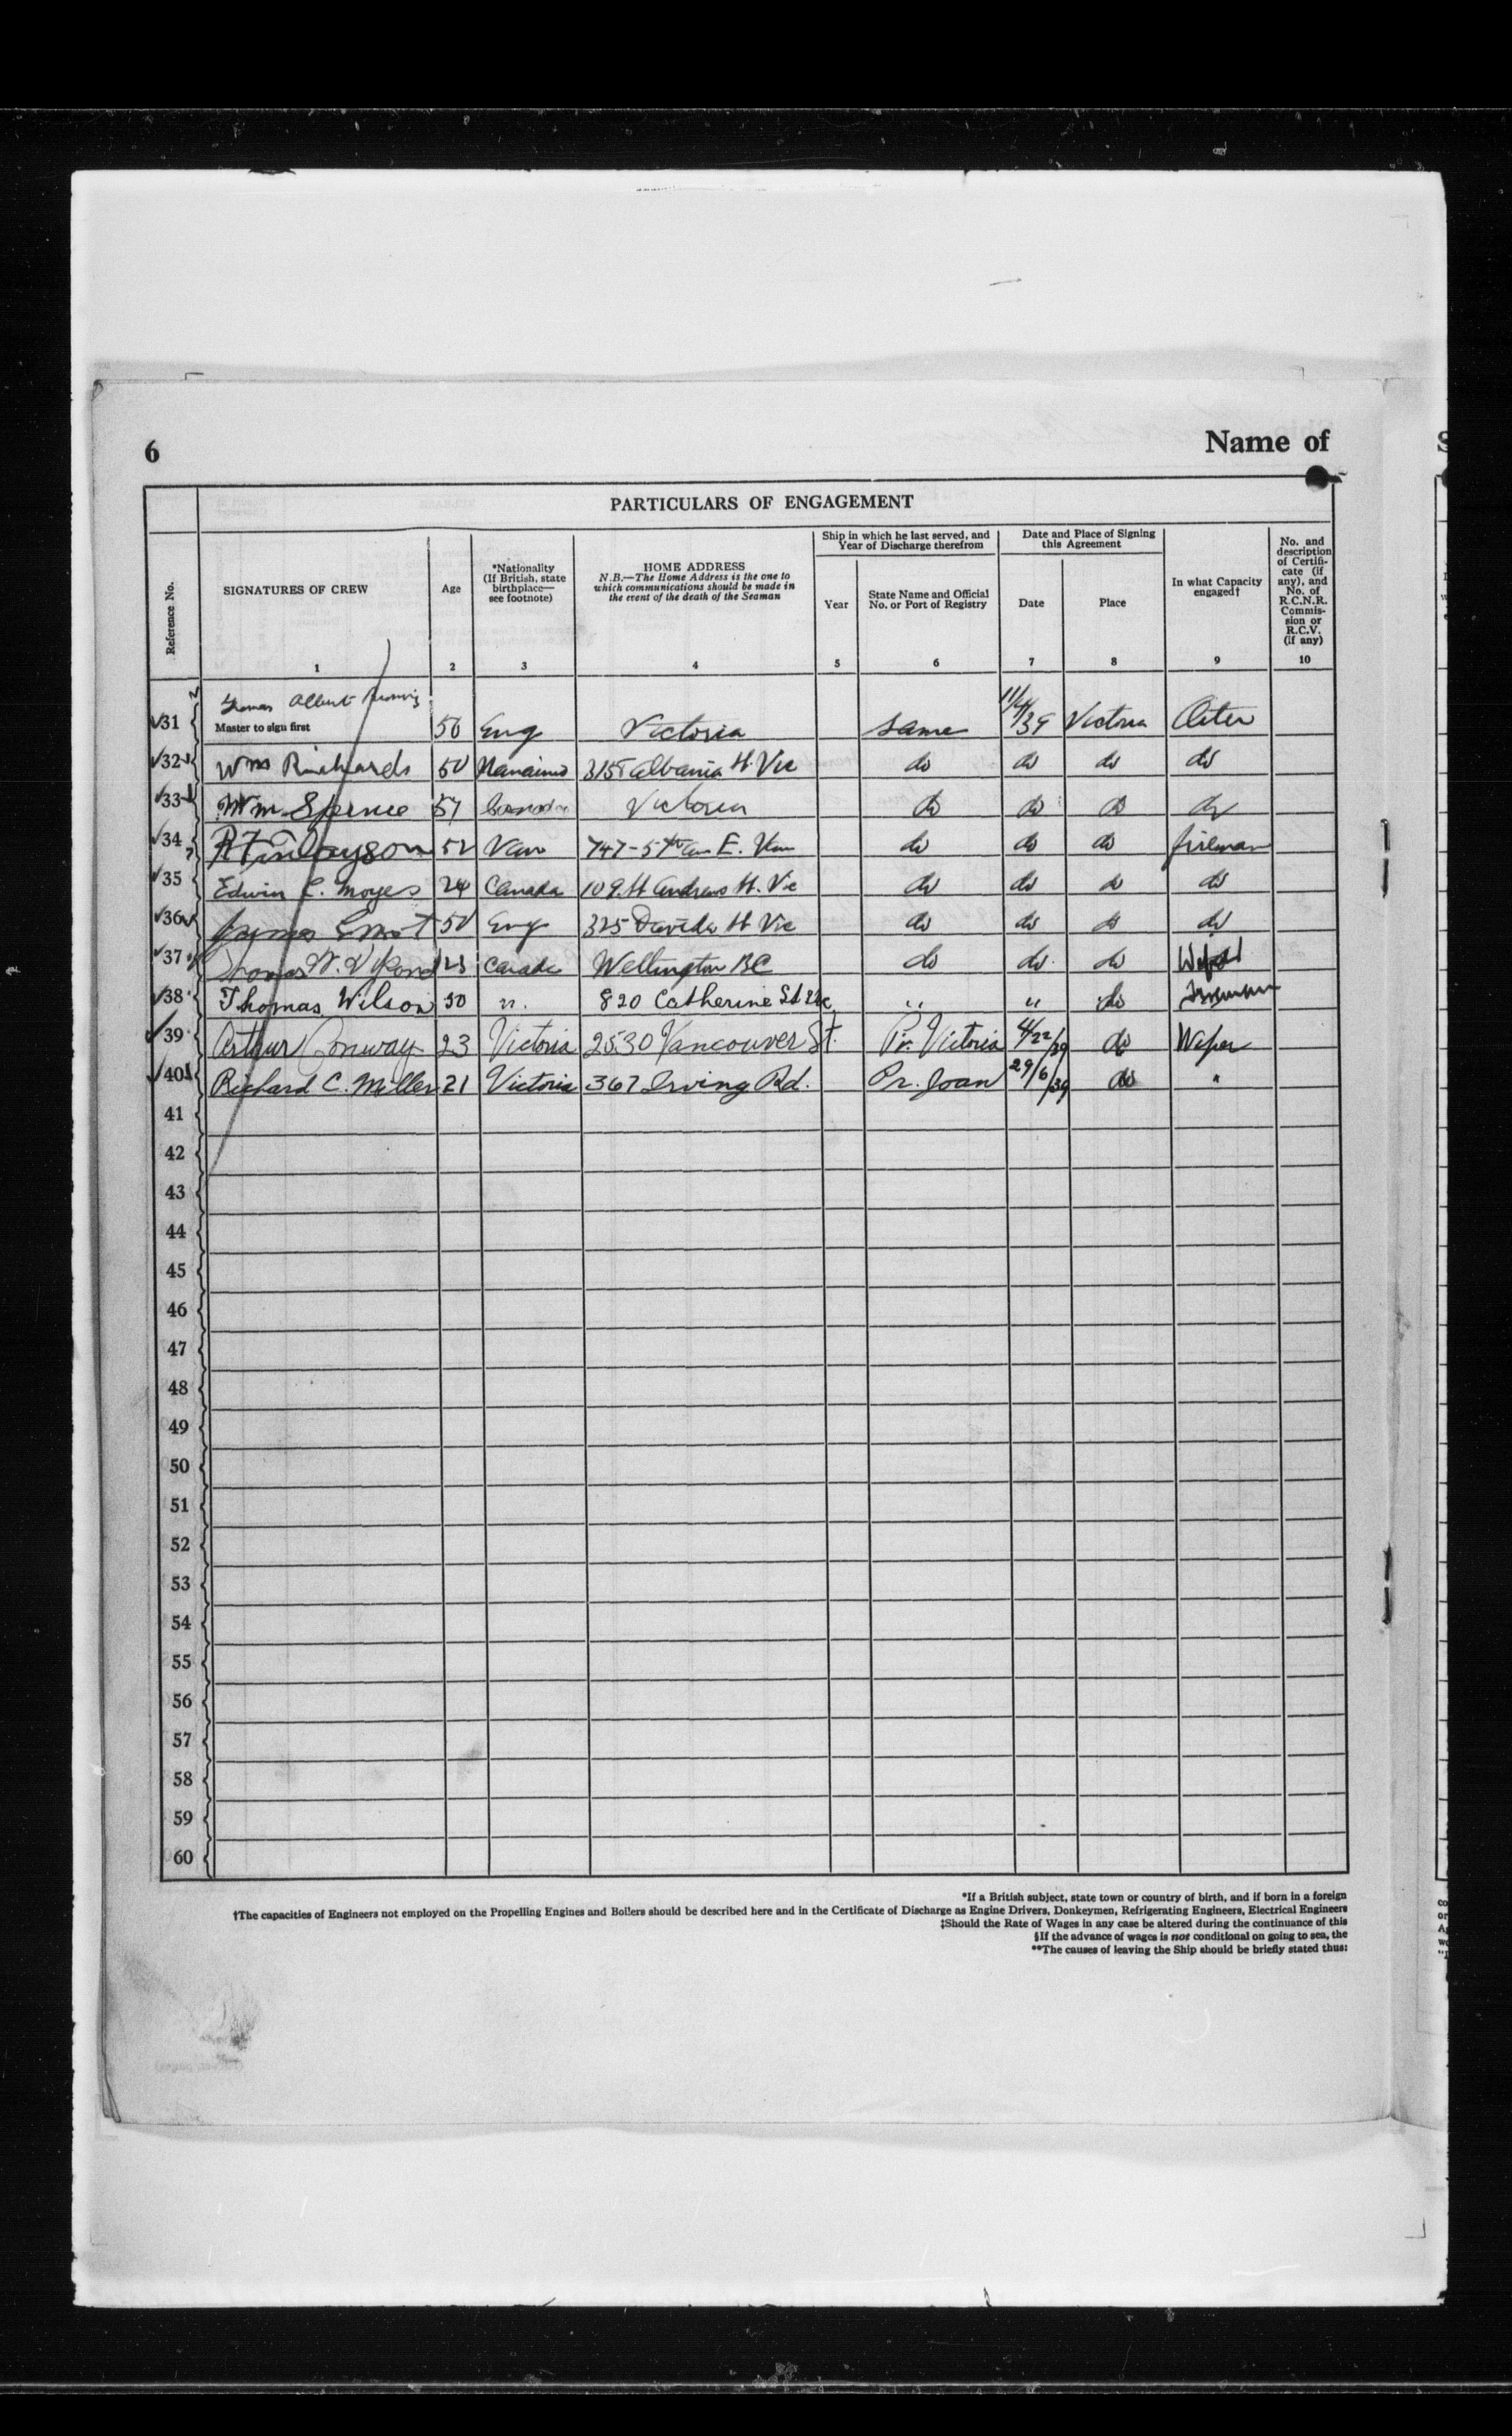 6
Name of
PARTICULARS OF ENGAGEMENT
Reference No.
SIGNATURES OF CREW
1
Age
2
*Nationality
(If British, state
birthplace—
see footnote)
3
HOME ADDRESS
N.B.—The Home Address is the one to
which communications should be made in
the event of the death of the Seaman
4
Ship in which he last served, and
Year of Discharge therefrom
Year
5
State Name and Official
No. or Port of Registry
6
Date and Place of Signing
this Agreement
Date
7
Place
8
In what Capacity
engaged†
9
No. and
description
of Certifi-
cate (if
any), and
No. of
R.C.N.R.
Commis-
sion or
R.C.V.
(if any)
10
31 Thomas Albert 50 Eng Victoria same 11/4/39 Victoria Oiler
Master to sign first
32 Wm Richards 50 Nanaimo Albania St. Vic do do do do
33 Wm Spence 57 Canada Victoria do do do do
34 R Finlayson 52 Van 747-5th Ave E. Van do do do fireman
35 Edwin C. Moyes 24 Canada 109 St Andrews St. Vic do do do do
36 James 50 Eng 325 Davida St Vic do do do do
37 Thomas W. 23 Canada Wellington BC do do do
38 Thomas Wilson 50 ". 820 Catherine St Vic " " do Fireman
39 Arthur Conway 23 Victoria 2530 Vancouver St. Pr. Victoria 4/22/39 do Wiper
40 Richard C. Miller 21 Victoria 367 Irving Rd. Pr. Joan 29/6/39 do "
41
42
43
44
45
46
47
48
49
50
51
52
53
54
55
56
57
58
59
60
*If a British subject, state town or country of birth, and if born in a foreign
†The capacities of Engineers not employed on the Propelling Engines and Boilers should be described here and in the Certificate of Discharge as Engine Drivers, Donkeymen, Refrigerating Engineers, Electrical Engineers
‡Should the Rate of Wages in any case be altered during the continuance of this
§If the advance of wages is not conditional on going to sea, the
**The causes of leaving the Ship should be briefly stated thus: